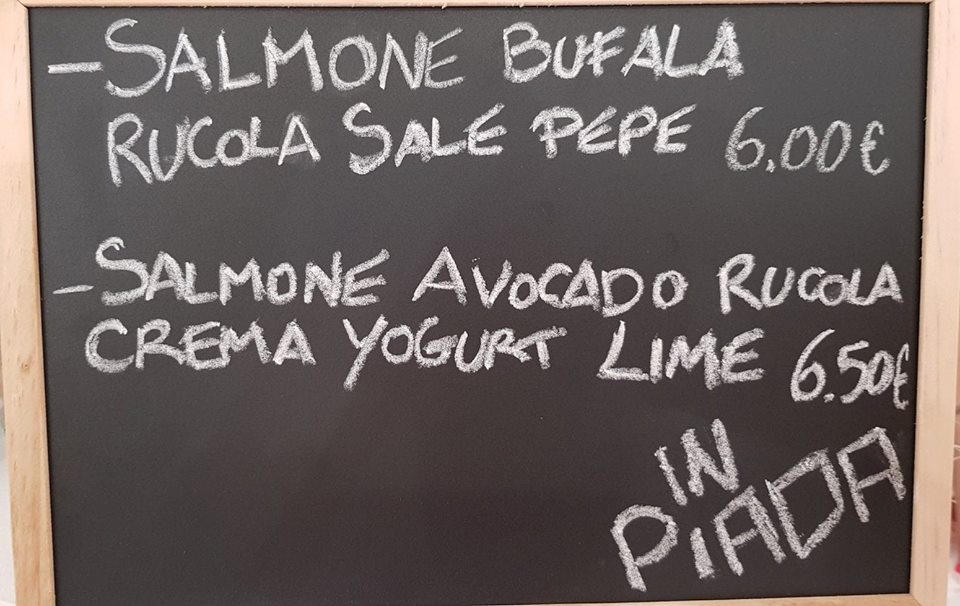 - SALMONE BUFALA
RUCOLA SALE PEPE 6.00€
- SALMONE AVOCADO RUCOLA
CREMA YOGURT LIME 6.50€
IN
PiADA